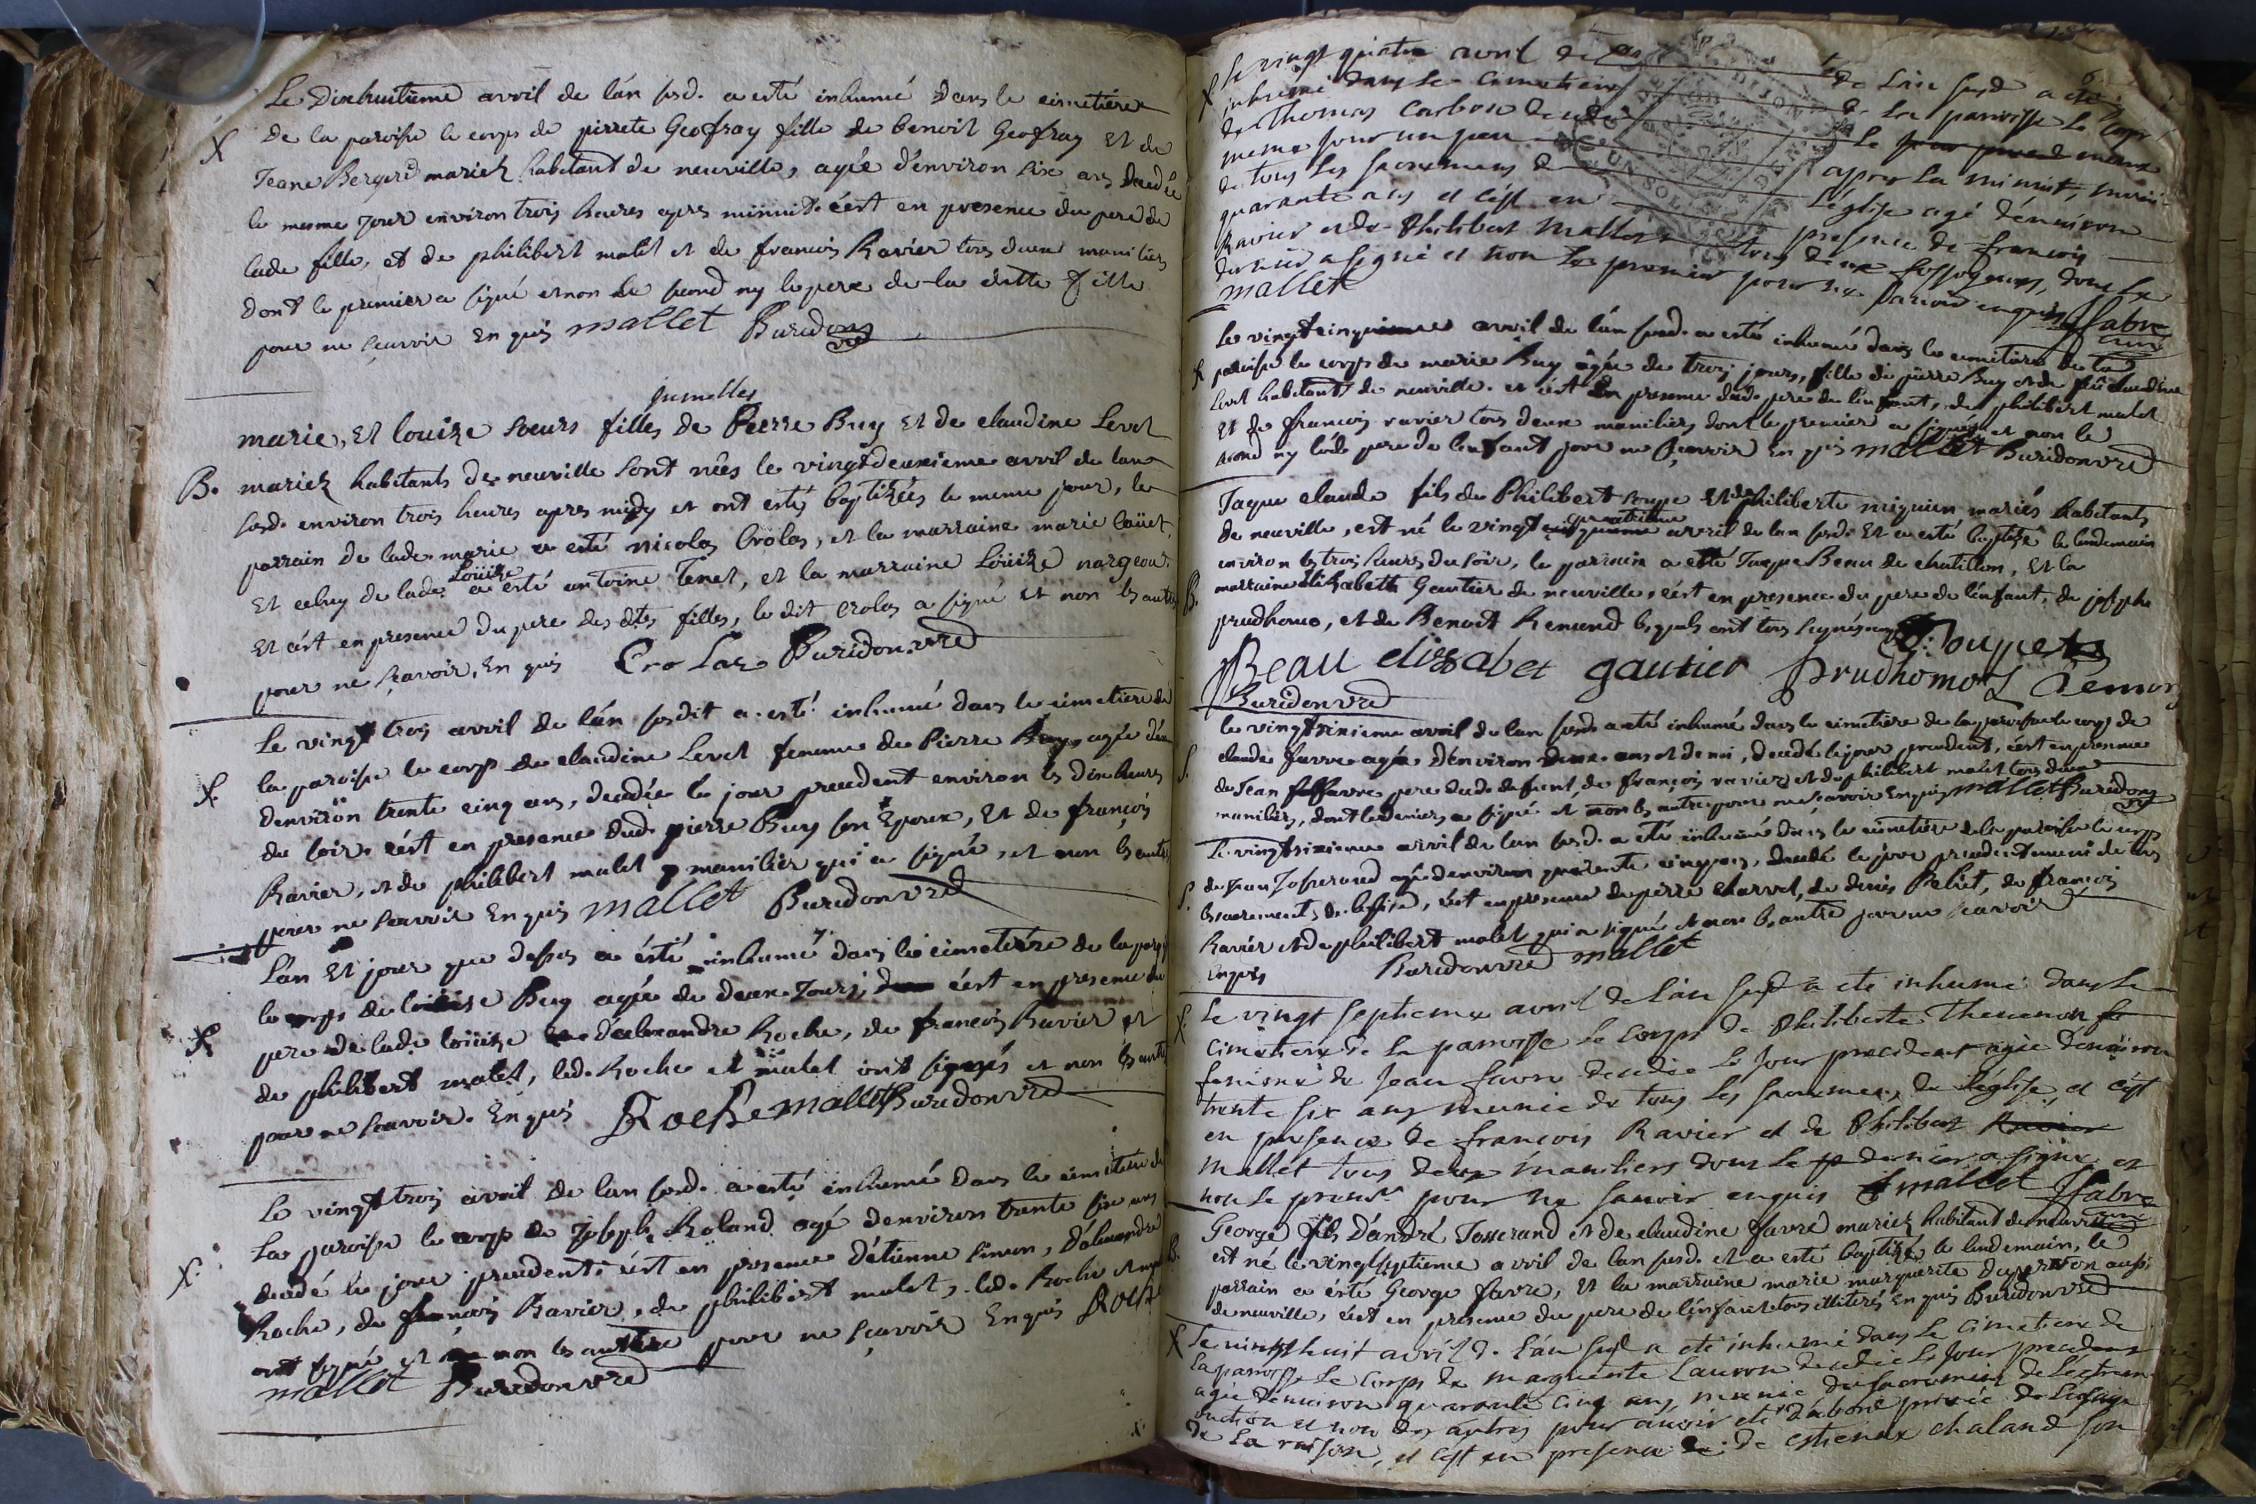 Le Dixhuitieme avril de l'an susd. a esté inhumé dans le cimetiere
X de la paroisse le corps de pierrete Geofray fille de benoit Geofray Et de
Jeane Bergerd mariez habitant de neuville, agée d'environ six ans decedée
le mesme jour environ trois heures apres minuit. c'est en presence du pere de
lade fille, et de philibert malet et de francois Ravier tous deux maniliers
dont le premier a signé et non le second ny le pere de la ditte fille
pour ne sçavoir Enquis mallet Buridon vre
jumelles
marie, Et louize soeurs filles de Pierre Buy Et de claudine Levet
B. mariez habitants de neuville sont nées le vingtdeuxieme avril de lan
susd. environ trois heures apres midy et ont esté baptizées le meme jour, le
parrain de lade. marie a esté nicolas Crolas, et la marraine marie
Et celuy de lade. Loüize a esté antoine Tenet, et la marraine Loüize nargeour.
Et c'est en presence du pere des dtes filles, le dit crolas a signé et non les autres
pour ne sçavoir, Enquis Crolas Buridon vre
Le vingt trois avril de l'an susdit a esté inhumé dans le cimetiere de
X. la paroisse le corps de claudine Levet femme de Pierre Buy, agée d'en
denviron trente cinq ans, decedée le jour precedent environ les dix heures
du soir. c'est en presence dud. pierre Buy son Epoux, Et de françois
Ravier, et de philibert malet manilier qui a signé, et non les autres
pour ne sçavoir Enquis mallet Buridon vre
L'an Et jour que dessus a été inhumé dans le cimetiére de la paroi
le corps de loüise Buy agée de deux jours, c'est en presence du
X pere de lade loüize d'alexandre Roche, de francois Ravier et
de philibert malet, led. Roche et malet ont signés et non les autres
pour ne sçavoir. Enquis Roche mallet Buridon vre
Le vingt trois avril de lan susd. a esté inhumé dans le cimetiere de
La paroisse le corps de Joseph Roland agé denviron trente six ans
X. decedé le jour precedent. c'est en presence d'étienne simon, d'alexandre
Roche, de francois Ravier, de philibert malet, led. Roche et
ont signé et non les autre pour ne sçavoir Enquis Roche
mallet Buridon vre
X Le vingt quatre avril de l'an susd a eté
inhumé dans le cimetiere de la paroisse le corps
de Thomas Carbon decedé le
meme jour un peu apres la minuit, muni
de tous les sacremens de l'église agé d'environ
quarante ans et c'est en presence de francois
Ravier et de Philibert Mallet tous deux fossoyeurs, dont le
dernier a signé et non le premier pour ne sçavoir enquis ffabre
mallet curé
Le vingtcinquieme avril de l'an susd. a esté inhumé dans le cimetiere de la
X paroisse le corps de marie Buy agée de trois jours, fille de pierre Buy et de feu claudine
Levet habitants de neuville. et c'est en presence dud. pere de l'enfant, de philibert malet
Et de francois ravier tous deux maniliers dont le premier a signé et non le
second ny ledt. pere de l'enfant pour ne sçavoir Enquis mallet Buridon vre
Jaque claude fils de Philibert soupe Et de philiberte miguien mariés habitants
quatrieme
de neuville, est né le vingt avril de lan susd. Et a esté baptizé le lendemain
environ les trois heures du soir, le parrain a eté Jaque Beau de chatillon, Et la
B. marraine elizabeth Gautier de neuville, c'est en presence du pere de l'enfant, de joseph
prudhome, et de Benoit Remond lesquels ont tous signés Soupe
Beau elizabet gautier Prudhomot Remon
Buridon vre
le vingtsixieme avril de lan susd. a eté inhumé dans le cimetiere de la paroisse le corps de
S. claude favre agée d'environ deux ans et demi, decedé le jour precedent, c'est en presence
de Jean favre pere dud. defunt, de françois ravier et de philibert malet tous deux
maniliers, dont le dernier a signé et non les autre pour ne sçavoir Enquis mallet Buridon vre
Le vingtsixieme avril de lan susd. a eté inhumé dans le cimetiére de la paroisse le corps
S. de Jean Josserand agé denviron quarente cinq ans, decedé le jour precedent muni de tous
les sacrements de l'eglise, c'est en presence de pierre charvet, de denis Peliet, de francois
Ravier et de philibert malet qui a signé et non les autre pour ne sçavoir
Enquis Buridon vre mallet
X. Le vingt septieme avril de l'an susd a eté inhumé dans le
cimetiere de la paroisse le corps de Philiberte Thevenon
femme de Jean favre decedée le jour precedent agée d'environ
trente six ans munie de tous les sacremens de l'église, et c'est
en presence de francois Ravier et de Philibert
Mallet tous deux maniliers dont le dernier a signé et
non le premr pour ne savoir enquis mallet ffabre
curé
George fils d'andré Josserand et de claudine favre mariez habitant de neuville
B. est né le vingtseptieme avril de lan susd. et a esté baptizé le lendemain, le
parrain a été George favre, Et la marraine marie marguerite duperron aussi
de neuville, c'est en presence du pere de l'enfant tous illiterés Enquis Buridon vre
X Le vingt huit avril de l'an susd a eté inhumé dans le cimetiere de
la paroisse le corps de marguerite Lauron decedée le jour precedent
agée d'environ quarante cinq ans, munie du sacrement de l'extrem
onction et non des autres pour avoir eté d'abord privée de l'usage
de la raison, et c'est en presence de estienne chaland son